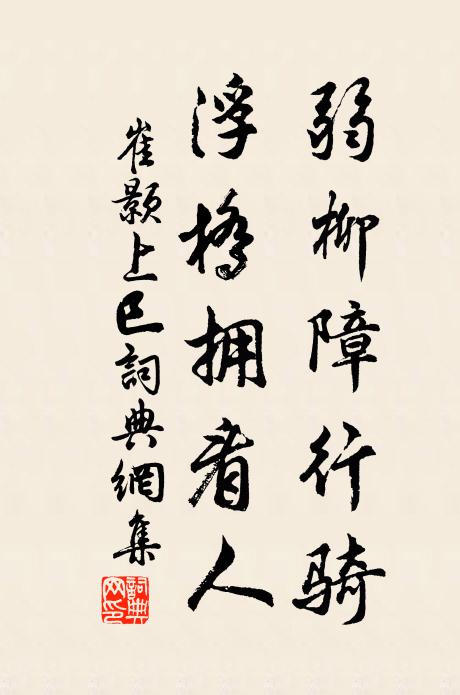 弱柳障行骑
浮橋拥看人
崔颢上巳詞典網集
詞典网印